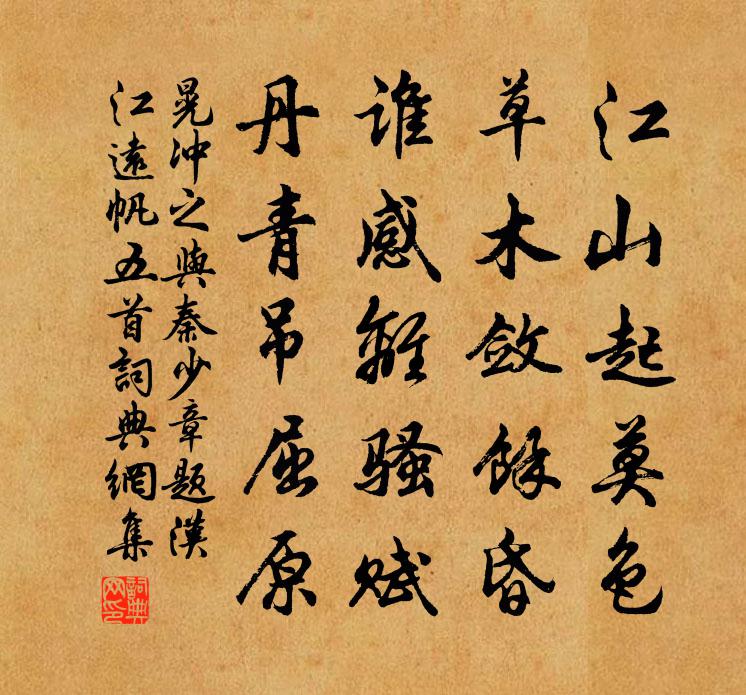 江山起莫色
草木斂餘昏
谁感離骚赋
丹青吊屈原
晁沖之與秦少章題漢
江遠帆五首詞典網集
詞典
网印